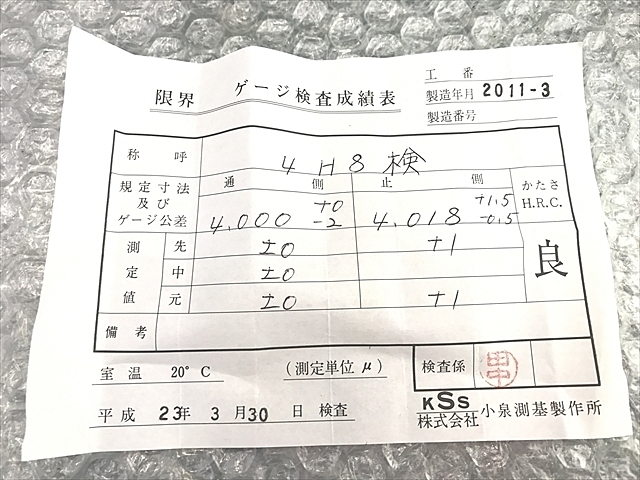 工番
限界 ゲージ検査成績表
製造年月 2011-3
製造番号
称呼 4 H8 検
規定寸法及びゲージ公差 通側 4.000 +0 -2 止側 4.018 +1.5 -0.5 かたさ H.R.C.
測定値 先 ±0 +1 良
中 ±0
元 ±0 +1
備考
室温 20°C (測定単位μ) 検査係 田中
平成 23年 3月30日 検査
KSS
株式会社 小泉測基製作所